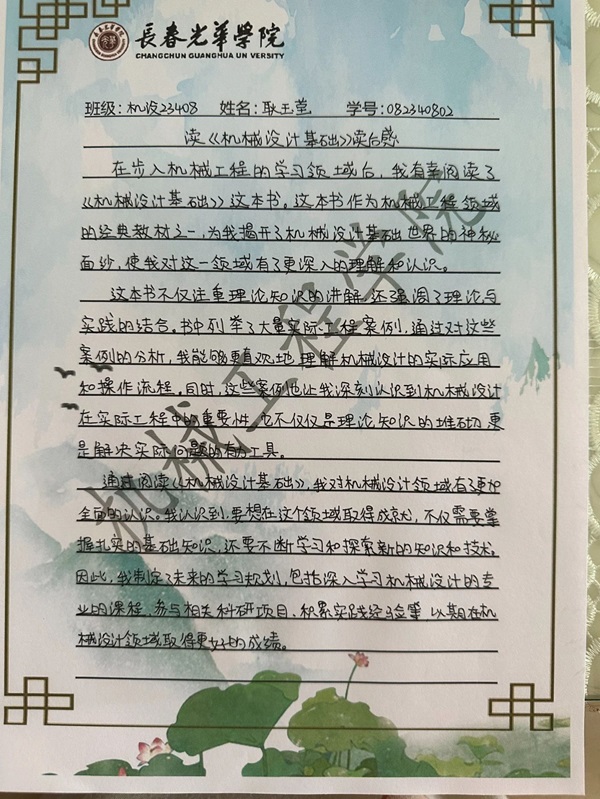 長春光華學院
CHANGCHUN GUANGHUA UN VERSITY
班级：机设23408 姓名：耿玉莹 学号：082340802
读《机械设计基础》读后感
在步入机械工程的学习领域后，我有幸阅读了
《机械设计基础》这本书。这本书作为机械工程领域
的经典教材之一，为我揭开了机械设计基础世界的神秘
面纱，使我对这一领域有了更深入的理解和认识。
这本书不仅注重理论知识的讲解，还强调了理论与
实践的结合。书中列举了大量实际工程案例，通过对这些
案例的分析，我能够更直观地理解机械设计的实际应用
和操作流程。同时，这些案例也让我深刻认识到机械设计
在实际工程中的重要性，它不仅仅是理论知识的堆砌，更
是解决实际问题的有力工具。
通过阅读《机械设计基础》，我对机械设计领域有了更加
全面的认识。我认识到，要想在这个领域取得成就，不仅需要掌
握扎实的基础知识，还要不断学习和探索新的知识和技术。
因此，我制定了未来的学习规划，包括深入学习机械设计的专
业的课程，参与相关科研项目，积累实践经验等，以期在机
械设计领域取得更好的成绩。
机械工程学院